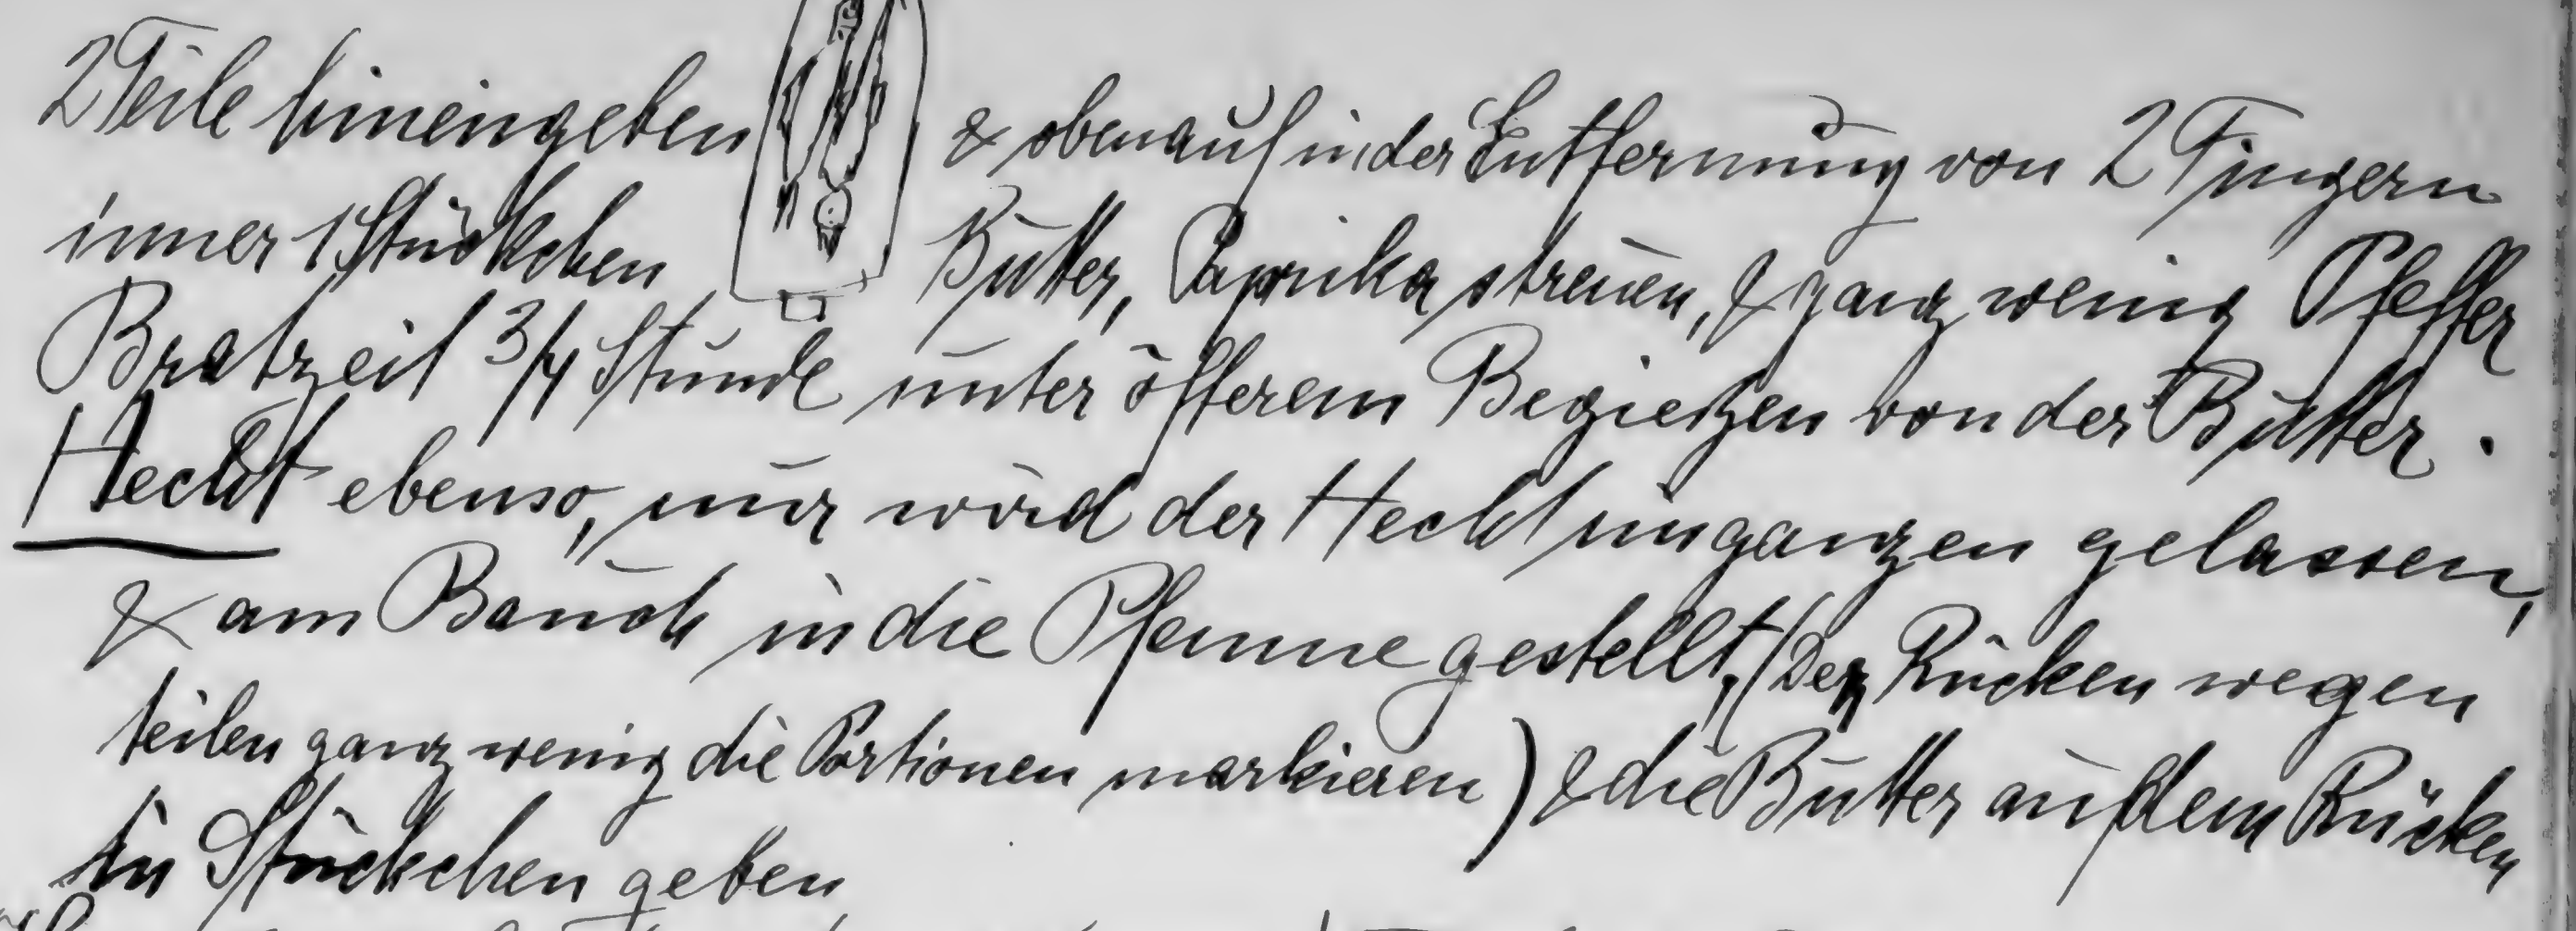 2 Teile hineingeben & obenauf in der Entfernung von 2 Fingern
immer 1 Stückchen Butter, Paprika streuen, & ganz wenig Pfeffer
Bratzeit 3/4 Stunde unter öfferem Begießen von der Butter.
Hecht ebenso, nur wird der Hecht im ganzen gelassen,
& am Bauch in die Pfanne gestellt, (Der Rücken wegen
teilen ganz wenig die Portionen markieren) & die Butter auf dem Rücken
in Stückchen geben